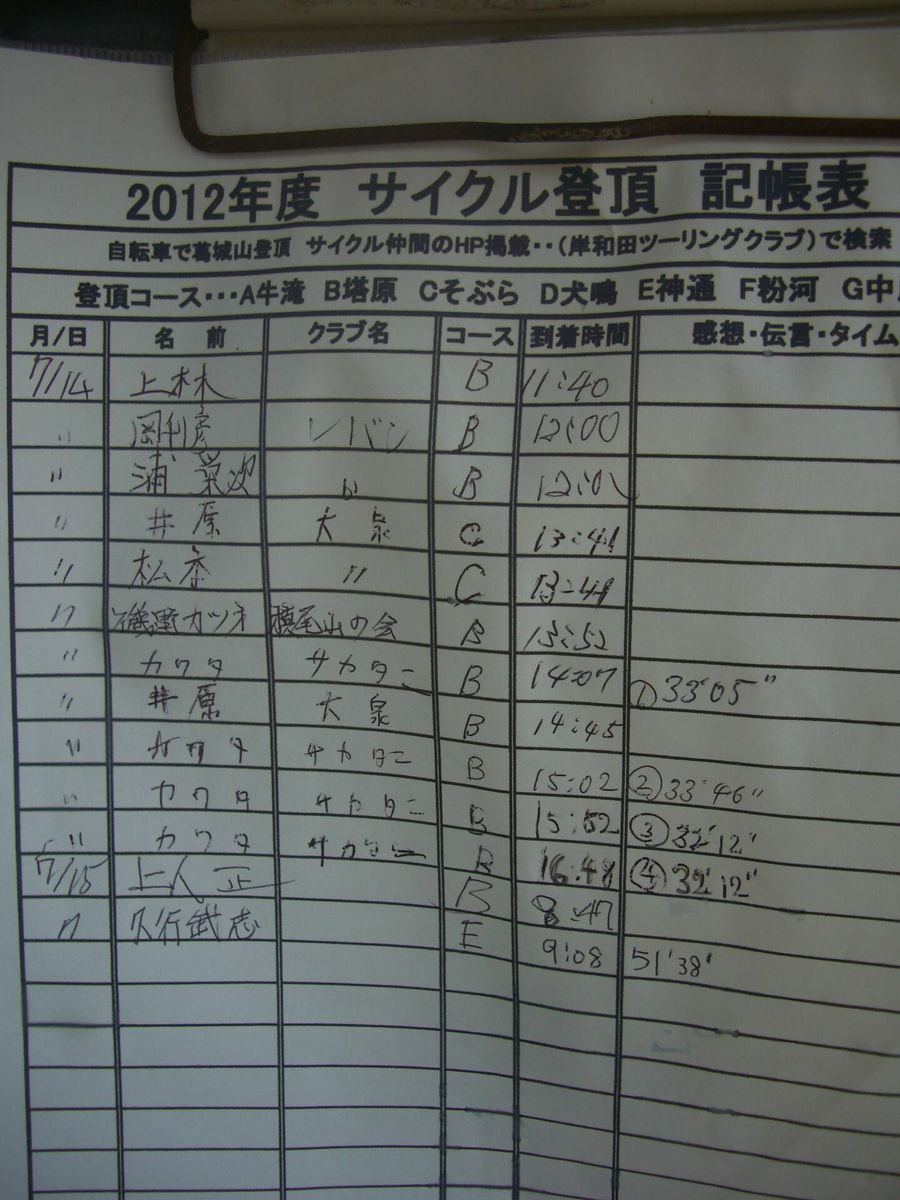 2012年度 サイクル登頂 記帳表
自転車で葛城山登頂 サイクル仲間のHP掲載・・(岸和田ツーリングクラブ)で検索
登頂コース・・・A牛滝 B塔原 Cそぶら D犬鳴 E神通 F粉河 G中
月/日 名前 クラブ名 コース 到着時間 感想・伝言・タイム
7/14 上林 B 11:40
〃 岡利彦 レバン B 12:00
〃 浦 栄次 〃 B
〃 井原 大泉 C 13:41
〃 〃 C 13:41
〃 磯野カツオ 槙尾山の会 B 13:52
〃 カワタ サカタニ B 14:07 ①33'05"
〃 井原 大泉 B 14:45
〃 カワタ サカタニ B 15:02 ②33'46"
〃 カワタ サカタニ B 15:52 ③32'12"
〃 カワタ サカタニ B 16:48 ④32'12"
7/15 上人 正 B 8:47
〃 久行武志 E 9:08 51'38"